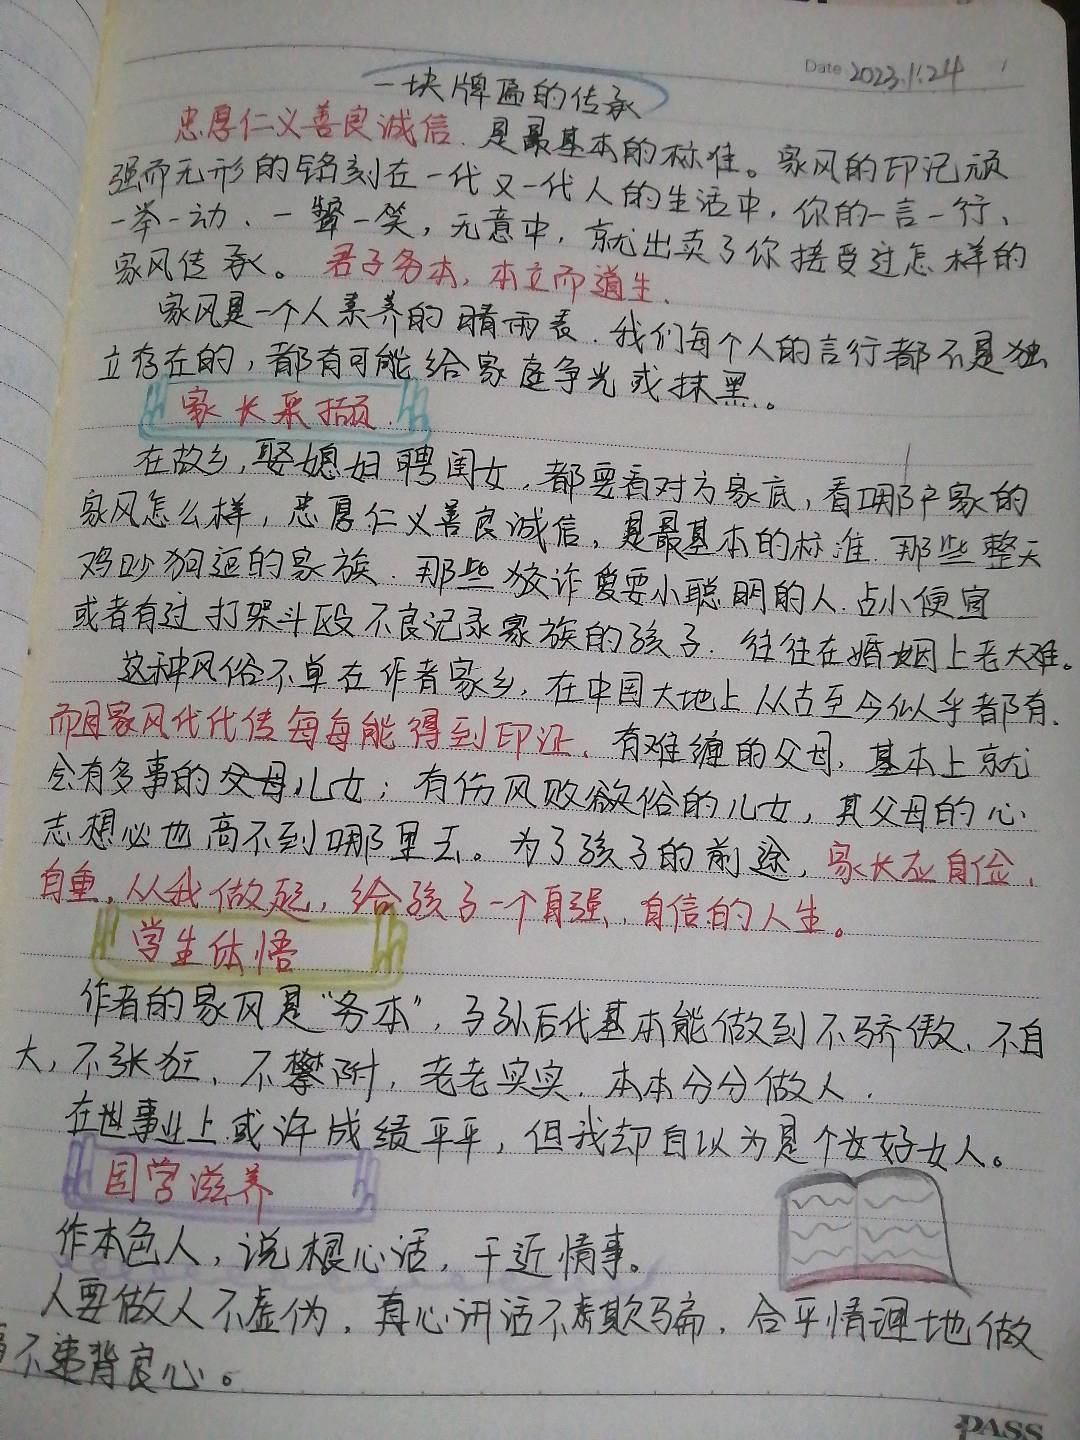 Date 2023.1.24
一块牌匾的传承
忠厚仁义善良诚信.是最基本的标准。家风的印记顽
强而无形的铭刻在一代又一代人的生活中,你的一言一行、
一举一动、一颦一笑,无意中,就出卖了你接受过怎样的
家风传承。君子务本,本立而道生.
家风是一个人素养的晴雨表.我们每个人的言行都不是独
立存在的,都有可能给家庭争光或抹黑.。
家长采撷
在故乡,娶媳妇聘闺女,都要看对方家底,看哪户家的
家风怎么样,忠厚仁义善良诚信,是最基本的标准.那些整天
鸡吵狗逗的家族.那些狡诈爱耍小聪明的人.占小便宜
或者有过打架斗殴不良记录家族的孩子.往往在婚姻上老大难。
这种风俗不单在作者家乡,在中国大地上从古至今似乎都有.
而因家风代代传每每能得到印证、有难缠的父母,基本上就
会有多事的父母儿女;有伤风败俗的儿女,其父母的心
志想必也高不到哪里去。为了孩子的前途,家长应自俭、
自重,从我做起,给孩子一个自强、自信的人生。
学生体悟
作者的家风是“务本”,子孙后代基本能做到不骄傲、不自
大,不张狂、不攀附,老老实实.本本分分做人.
在世事业上或许成绩平平,但我却自以为是个好女人。
国学滋养
作本色人,说根心话,干近情事。
人要做人不虚伪,真心讲话不欺骗,合乎情理地做
事不违背良心。
PASS